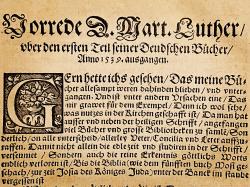 Vorrede D. Mart. Luther/
vber den ersten Teil seiner Deudschen Bücher/
Anno 1539. ausgangen.
GErn hette ichs gesehen/ Das meine Bü-
cher allesampt weren dahinden blieben/ vnd vnter-
gangen. Vnd ist vnter andern Vrsachen eine/ Das
mir grawet für dem Exempel/ Denn ich wol sehe/
was nutzes in der Kirchen geschafft ist/ Da man hat
ausser vnd neben der heiligen Schrifft/ angefangen
viel Bücher vnd grosse Bibliotheken zu samlen/ Son
derlich/ on alle vnterscheid/ allerley Veter/ Concilia vnd Lerer auff-
raffen. Damit nicht allein die edle zeit vnd studirn in der Schrifft
verseumet/ Sondern auch die reine Erkentnis göttlichs Worts
endlich verloren ist/ Bis die Biblia (wie dem fünfften buch Mosi ge-
schach/ zur zeit der Könige Juda) vnter der Banck im staube
vergessen ist